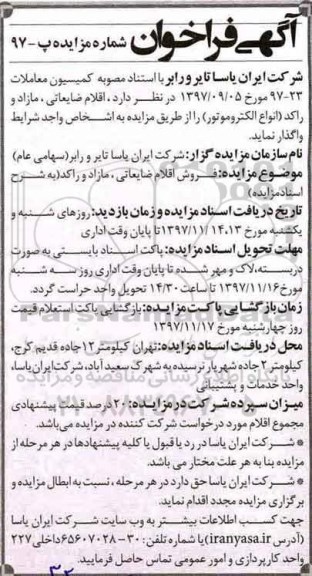 آگهی فراخوان شماره مزایده پ-۹۷
شرکت ایران یاسا تایر و رابر با استناد مصوبه کمیسیون معاملات
۲۳-۹۷ مورخ ۱۳۹۷/۰۹/۰۵ در نظر دارد ، اقلام ضایعاتی ، مازاد و
راکد (انواع الکتروموتور) را از طریق مزایده به اشخاص واجد شرایط
واگذار نماید.
نام سازمان مزایده گزار: شرکت ایران یاسا تایر و رابر (سهامی عام)
موضوع مزایده: فروش اقلام ضایعاتی ، مازاد و راکد (به شرح
اسناد مزایده)
تاریخ دریافت اسناد مزایده و زمان بازدید: روزهای شنبه و
یکشنبه مورخ ۱۳۹۷/۱۱/۱۴،۱۳ تا پایان وقت اداری
مهلت تحویل اسناد مزایده: پاکت اسناد بایستی به صورت
دربسته، لاک و مهر شده تا پایان وقت اداری روز سه شنبه
مورخ ۱۳۹۷/۱۱/۱۶ تا ساعت ۱۴/۳۰ تحویل واحد حراست گردد.
زمان بازگشایی پاکت مزایده: بازگشایی پاکت استعلام قیمت
روز چهارشنبه مورخ ۱۳۹۷/۱۱/۱۷
محل دریافت اسناد مزایده: تهران کیلومتر ۱۲ جاده قدیم کرج،
کیلومتر ۲ جاده شهریار نرسیده به شهرک سعید آباد، شرکت ایران یاسا،
واحد خدمات و پشتیبانی
میزان سپرده شرکت در مزایده: ۲۰ درصد قیمت پیشنهادی
مجموع اقلام مورد درخواست شرکت کننده در مزایده می‌باشد.
* شرکت ایران یاسا در رد یا قبول یا کلیه پیشنهادها در هر مرحله از
مزایده بنا به هر علت مختار می باشد.
* شرکت ایران یاسا حق دارد در هر مرحله ، نسبت به ابطال مزایده و
برگزاری مزایده مجدد اقدام نماید.
جهت کسب اطلاعات بیشتر به وب سایت شرکت ایران یاسا
(آدرس iranyasa.ir) یا شماره تلفن: ۳۰-۶۵۶۰۷۰۲۸ داخلی ۲۲۷
واحد کارپردازی و امور عمومی تماس حاصل فرمایید.